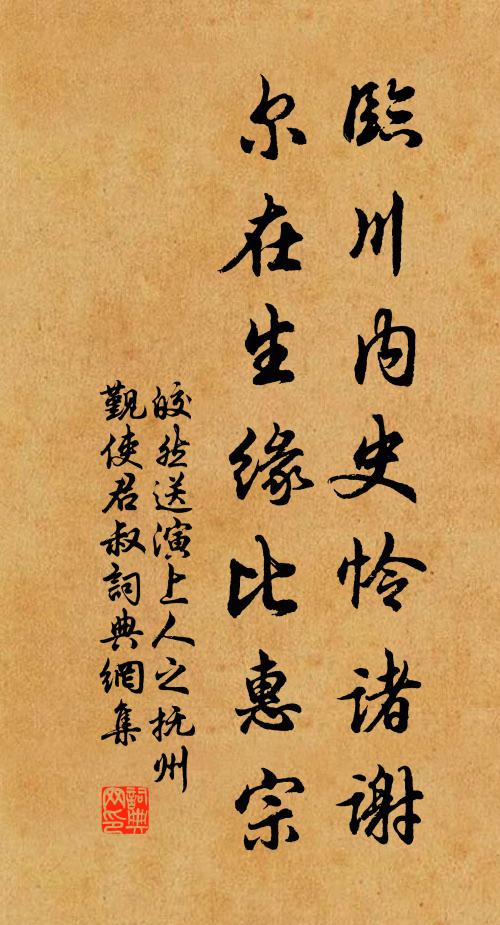 臨川内史怜诸谢
尔在生緣比惠宗
皎然送演上人之抚州
覲使君叔詞典網集
詞典
网印